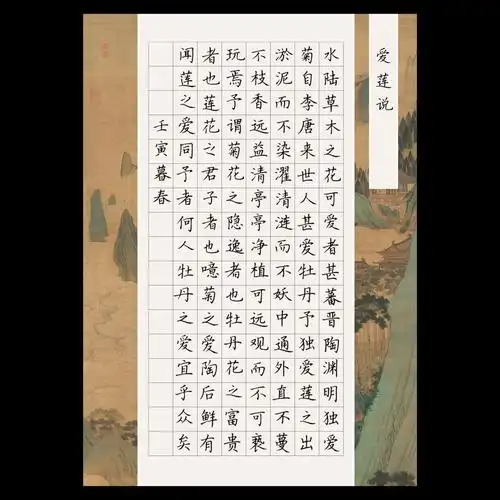 爱莲说
水陆草木之花可爱者甚蕃晋陶渊明独爱
菊自李唐来世人甚爱牡丹予独爱莲之出
淤泥而不染濯清涟而不妖中通外直不蔓
不枝香远益清亭亭净植可远观而不可亵
玩焉予谓菊花之隐逸者也牡丹花之富贵
者也莲花之君子者也噫菊之爱陶后鲜有
闻莲之爱同予者何人牡丹之爱宜乎众矣
壬寅暮春